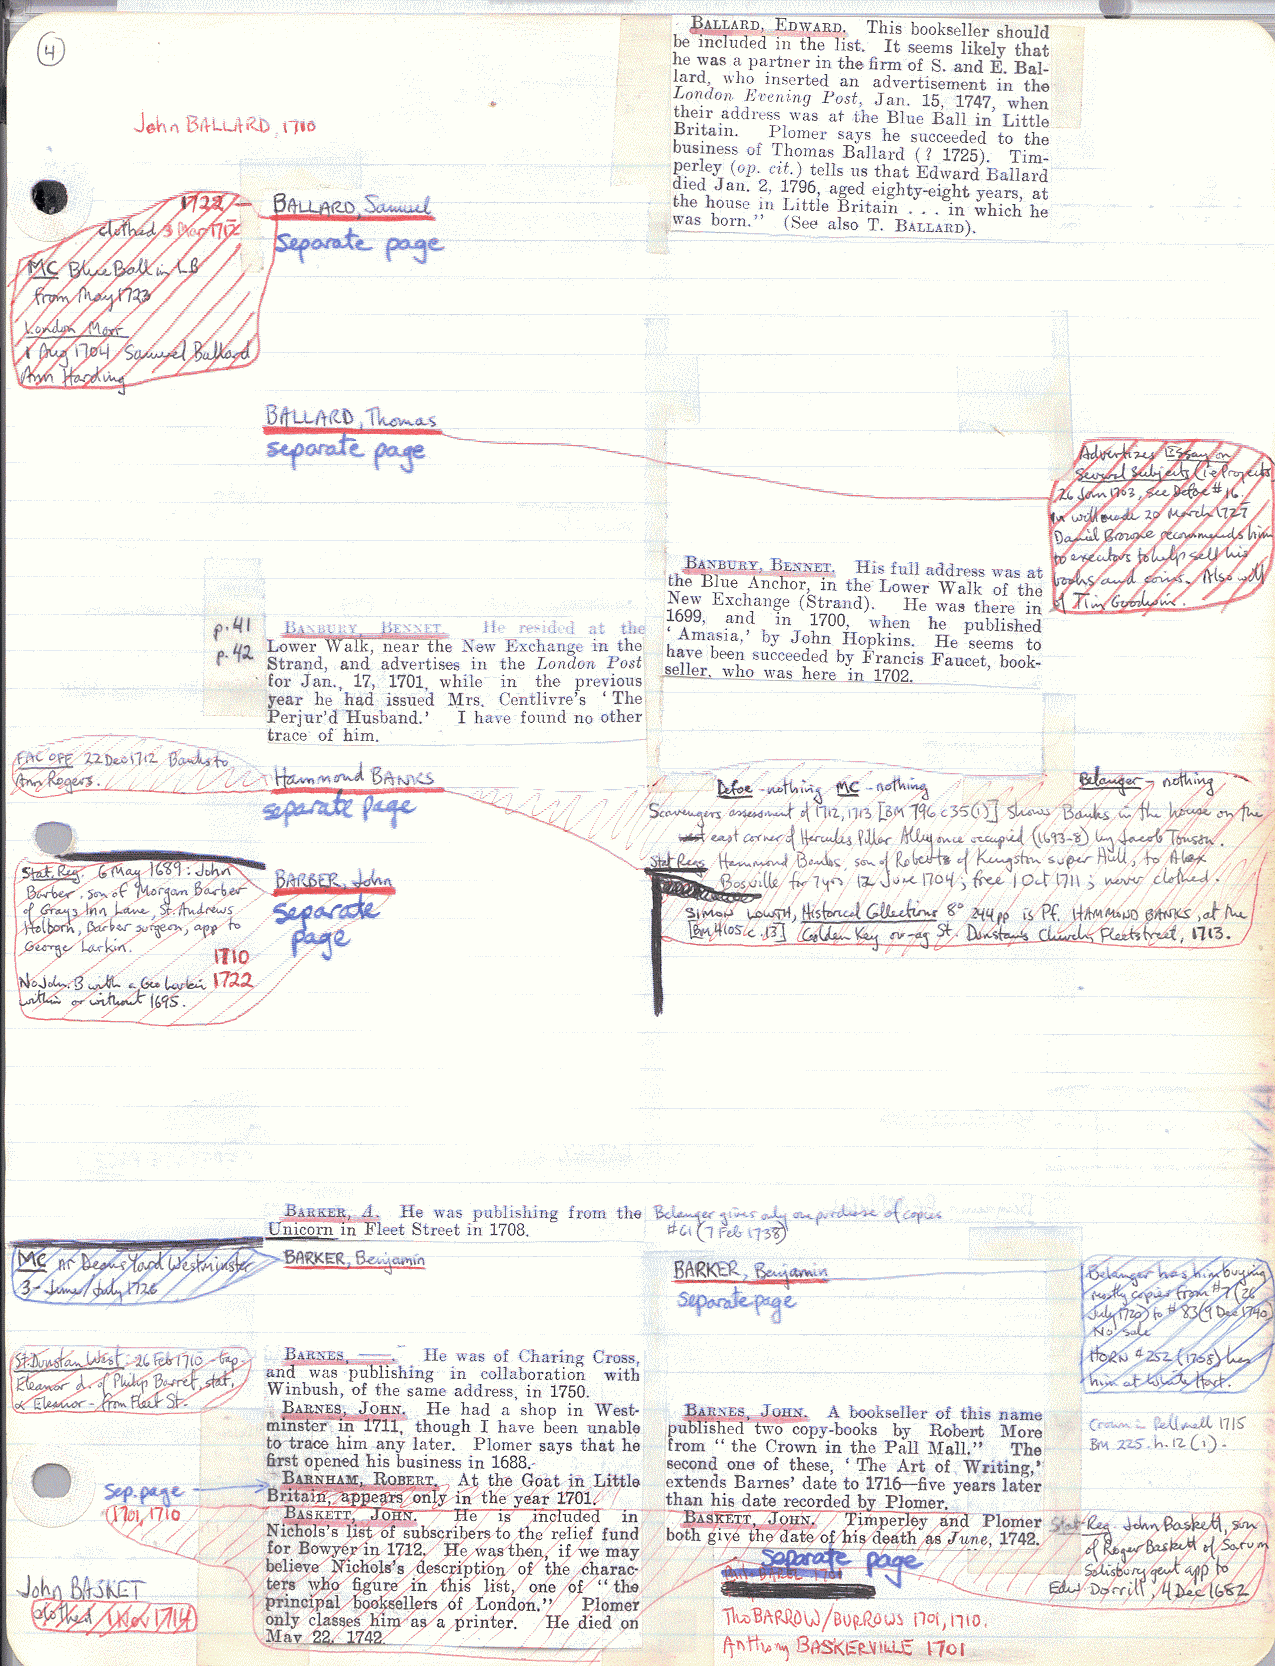 4
John BALLARD, 1710
BALLARD, EDWARD. This bookseller should
be included in the list. It seems likely that
he was a partner in the firm of S. and E. Bal-
lard, who inserted an advertisement in the
London Evening Post, Jan. 15, 1747, when
their address was at the Blue Ball in Little
Britain. Plomer says he succeeded to the
business of Thomas Ballard (? 1725). Tim-
perley (op. cit.) tells us that Edward Ballard
died Jan. 2, 1796, aged eighty-eight years, at
the house in Little Britain . . . in which he
was born." (See also T. BALLARD).
1722 –
clothed 3 Mar 1712
MC Blue Ball in LB
from May 1723
London Marr
1 Aug 1704 Samuel Ballard
Ann Harding
BALLARD, Samuel
Separate page
BALLARD, Thomas
separate page
Advertizes Essay on
Several Subjects (i.e. Projects
26 Jan 1703, see Defoe #16.
In will made 20 March 1727
Daniel Browne recommends him
to executors to help sell his
books and coins. Also will
of Tim Goodwin.
p. 41
p. 42
BANBURY, BENNET. He resided at the
Lower Walk, near the New Exchange in the
Strand, and advertises in the London Post
for Jan., 17, 1701, while in the previous
year he had issued Mrs. Centlivre's 'The
Perjur'd Husband.' I have found no other
trace of him.
BANBURY, BENNET. His full address was at
the Blue Anchor, in the Lower Walk of the
New Exchange (Strand). He was there in
1699, and in 1700, when he published
'Amasia,' by John Hopkins. He seems to
have been succeeded by Francis Faucet, book-
seller, who was here in 1702.
FAC OFF 22 Dec 1712 Banks to
Ann Rogers.
Hammond BANKS
separate page
Defoe - nothing MC - nothing
Belanger - nothing
Scavengers assessment of 1712, 1713 [BM 796 c 35 (1)] shows Banks in the house on the
east corner of Hercules Pillar Alley once occupied (1693-8) by Jacob Tonson.
Stat Reg Hammond Banks, son of Robert of Kingston super Hull, to Alex
Bosville for 7 yrs 12 June 1704; free 1 Oct 1711; never clothed.
SIMON LOWTH, Historical Collections 8° 244pp is Pf. HAMMOND BANKS, at the
[BM 4105 c. 13] Golden Key ov-ag St. Dunstans Church, Fleetstreet, 1713.
Stat. Reg. 6 May 1689: John
Barber, son of Morgan Barber
of Grays Inn Lane, St. Andrews
Holborn, Barber surgeon, app to
George Larkin.
1710
No John B with a Geo Larkin 1722
within or without 1695.
BARBER, John
Separate
page
BARKER, A. He was publishing from the
Unicorn in Fleet Street in 1708.
Belanger gives only one purchase of copies
#61 (7 Feb 1738)
MC nr Deans Yard Westminster
3 - June/July 1726
BARKER, Benjamin
BARKER, Benjamin
Separate page
Belanger has him buying
mostly copies from #7 (26
July 1720) to #83 (9 Dec 1740)
No sale
HORN #252 (1738) has
him at White Hart.
St. Dunstan West: 26 Feb 1710 - bap.
Eleanor d. of Philip Barret, stat,
& Eleanor - from Fleet St.
BARNES, —. He was of Charing Cross,
and was publishing in collaboration with
Winbush, of the same address, in 1750.
BARNES, JOHN. He had a shop in West-
minster in 1711, though I have been unable
to trace him any later. Plomer says that he
first opened his business in 1688.
BARNHAM, ROBERT. At the Goat in Little
Britain, appears only in the year 1701.
BASKETT, JOHN. He is included in
Nichols's list of subscribers to the relief fund
for Bowyer in 1712. He was then, if we may
believe Nichols's description of the charac-
ters who figure in this list, one of "the
principal booksellers of London." Plomer
only classes him as a printer. He died on
May 22, 1742.
BARNES, JOHN. A bookseller of this name
published two copy-books by Robert More
from "the Crown in the Pall Mall." The
second one of these, 'The Art of Writing,'
extends Barnes' date to 1716—five years later
than his date recorded by Plomer.
BASKETT, JOHN. Timperley and Plomer
both give the date of his death as June, 1742.
Crown in Pell mell 1715
BM 225. h. 12 (1).
Sep. page
1701, 1710
John BASKET
clothed 1 Nov 1714
Separate page
Tho BARROW/BURROWS 1701, 1710.
Anthony BASKERVILLE 1701
Stat Reg. John Baskett, son
of Roger Baskett of Sarum
Salisbury gent app to
Edw Dorrill, 4 Dec 1682